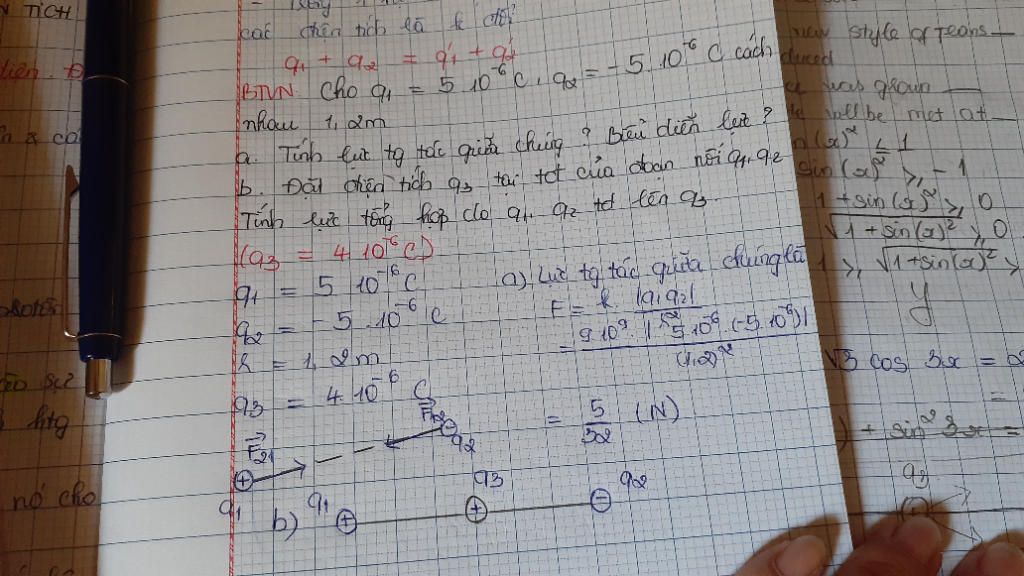 N TÍCH
các điện tích là k đổi
q₁ + q₂ = q₁' + q₂'
BTVN Cho q₁ = 5 10⁻⁶ C, q₂ = -5. 10⁻⁶ C cách
nhau 1,2m
a. Tính lực tg tác giữa chúng? Biểu diễn lực?
b. Đặt điện tích q₃ tại tđ của đoạn nối q₁, q₂
Tính lực tổng hợp do q₁, q₂ td lên q₃.
(q₃ = 4 10⁻⁶ C)
q₁ = 5 10⁻⁶ C
q₂ = -5 .10⁻⁶ C
r = 1,2m
q₃ = 4 10⁻⁶ C
a) Lực tg tác giữa chúng là
F = k. |q₁ q₂| / r²
= 9 10⁹. |5 10⁻⁶. (-5.10⁻⁶)| / (1,2)²
= 5/32 (N)
F₂₁ F₁₂ q₂
q₁
b) q₁ q₃ q₂
htg
nó cho
new style of jeans
was grown
will be met at
sin(x)² ≤ 1
sin(x)² ≥ -1
1 + sin(x)² ≥ 0
√1 + sin(x)² ≥ 0
1 ≥ √1 + sin(x)² ≥
y
√3 cos 3x =
=
+ sin² 3x =